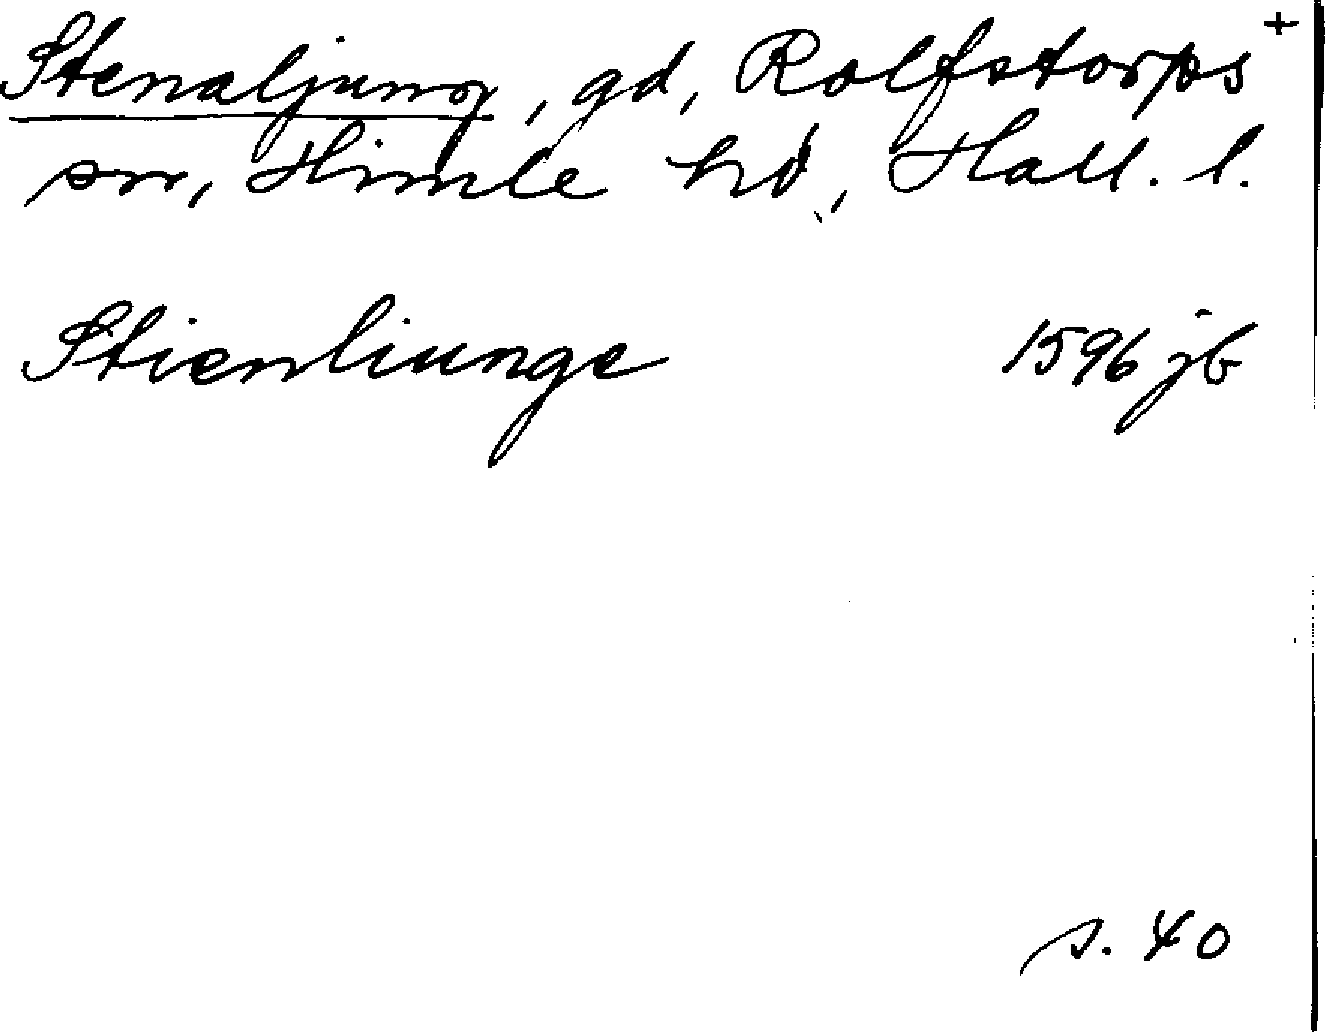 Stenaljung, gd, Rolfstorps +
sn, Himle hd, Hall. l.
Stienliunge 1596 jb
s. 40